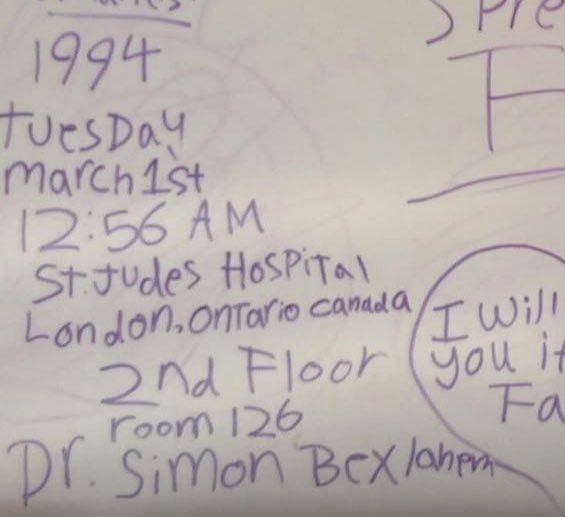 1994
Tuesday
march 1st
12:56 AM
St. Judes Hospital
London, Ontario canada
2nd Floor
room 126
Dr. Simon
I will
you